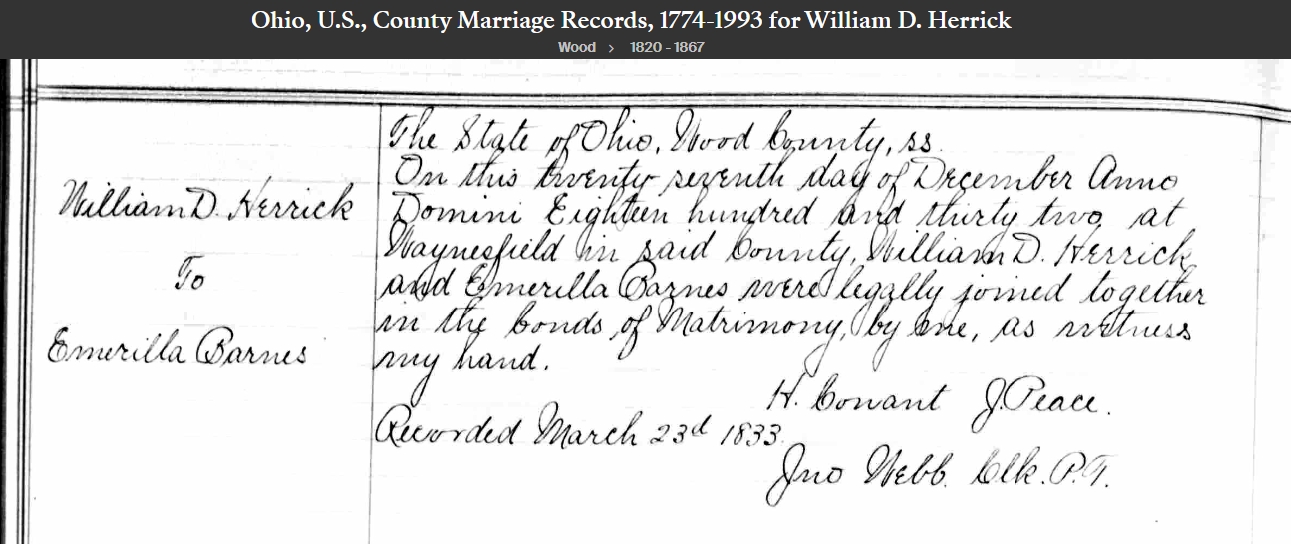 Ohio, U.S., County Marriage Records, 1774-1993 for William D. Herrick
Wood > 1820 - 1867
William D. Herrick
To
Emerilla Barnes
The State of Ohio, Wood County, ss.
On this twenty seventh day of December Anno
Domini Eighteen hundred and thirty two at
Waynesfield in said County, William D. Herrick
and Emerilla Barnes were legally joined together
in the bonds of Matrimony, by me, as witness
my hand.
H. Conant J. Peace.
Recorded March 23d 1833.
Jno Webb. Clk. P.T.